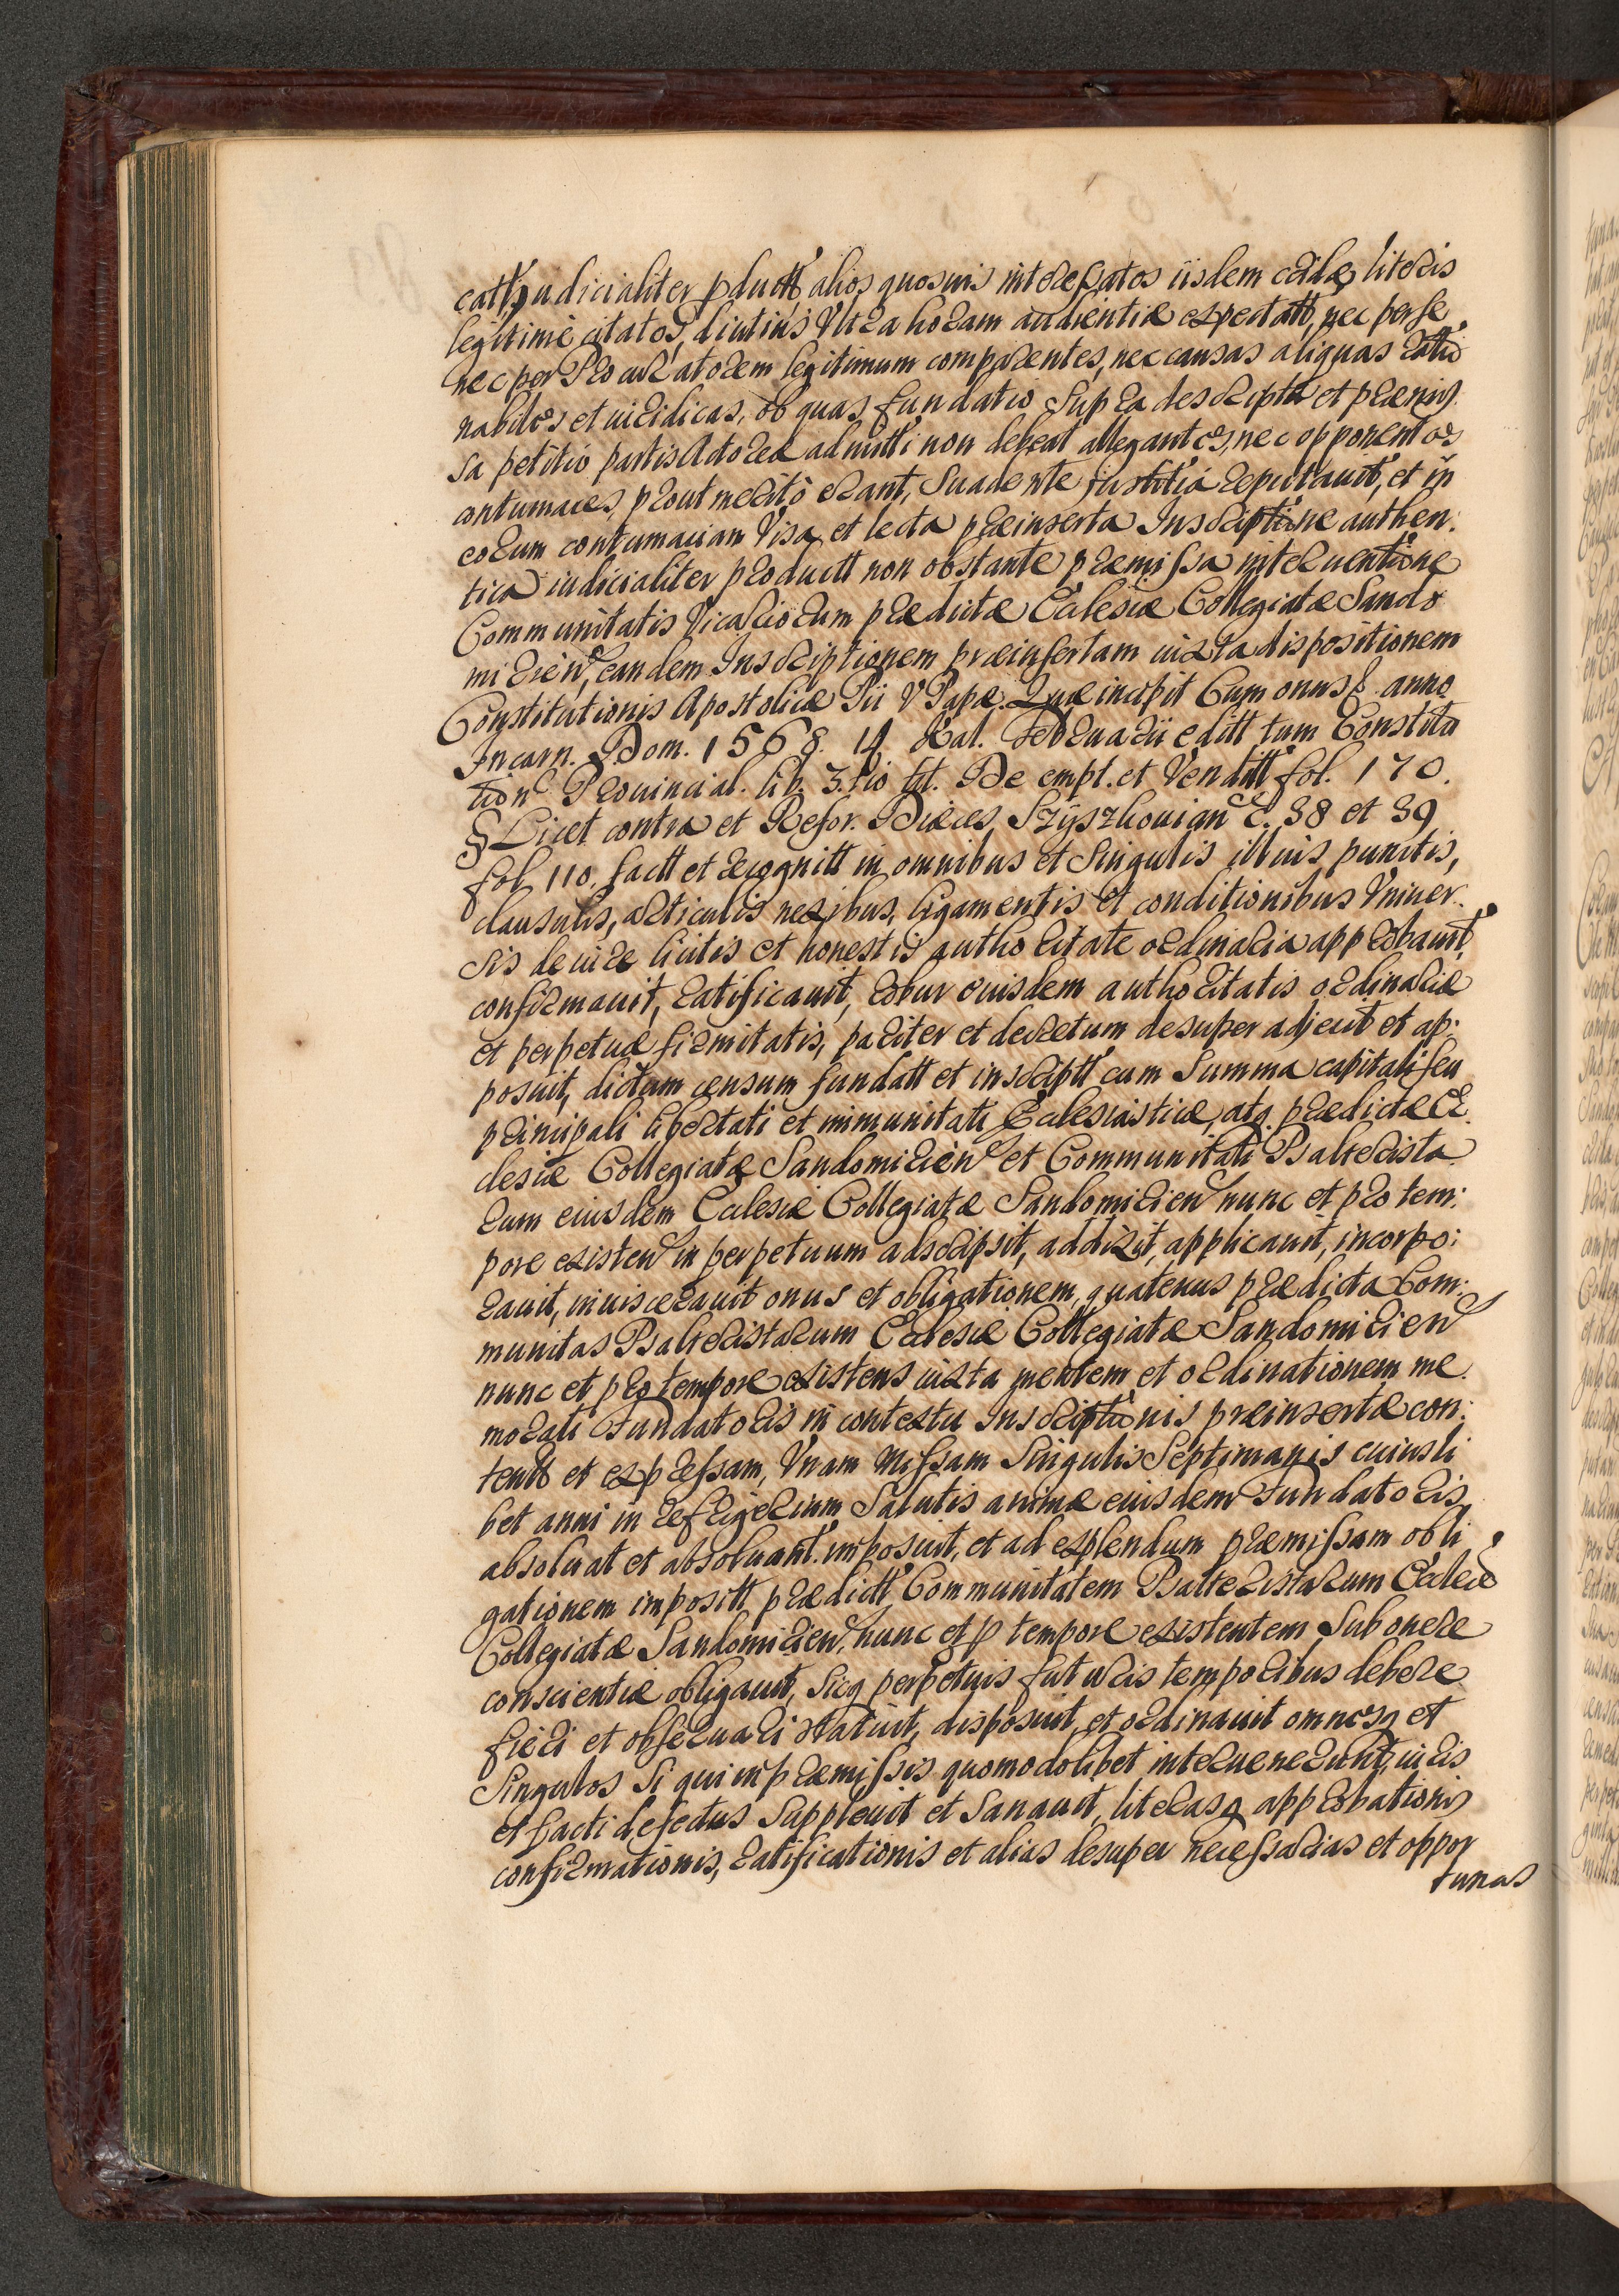 catt, iudicialiter pductt alios quosuis interessatos iisdem literis
legitimè citatos, diutius Vltra horam audientiæ expectatt, nec per se
nec per Procuratorem legitimum comparentes, nec causas aliquas ratio
nabiles et iuridicas, ob quas fundatio supra descripta et præmis
sa petitio partis Actoreæ admitti non debeat allegantes, nec opponentes
contumaces, prout meritò erant, suadente iustitia reputauit, et in
eorum contumaciam Visa et lecta præinserta Inscriptione authen:
tica iudicialiter productt non obstante præmissa interuentione
Communitatis Vicariorum prædictæ Ecclesiæ Collegiatæ Sando
mirien, eandem Inscriptionem præinsertam iuxta dispositionem
Constitutionis Apostolicæ Pii V Papæ. Quæ incipit Cum onus anno
Incarn. Dom. 1568. 14. Kal. Februarii editt tum Constitu
tion Prouincial. lib. 3.tio tit. De empt. et Venditt fol. 170.
§ Licet contra et Refor. Diæces, Szyszkouian C. 38 et 39
fol 110. factt et recognitt in omnibus et singulis illius punctis,
clausulis, articulis nexibus, ligamentis et conditionibus Vniuer.
sis de iure licitis et honestis authoritate ordinaria approbauit,
confirmauit, ratificauit, robur eiusdem authoritatis ordinariæ
et perpetuæ firmitatis, pariter et decretum desuper adjecit et ap:
posuit, dictum censum fundatt et inscriptt cum Summa capitali seu
principali libertati et immunitati Ecclesiasticæ, atq prædictæ Ec.
clesiæ Collegiatæ Sandomirien et Communitati Psalterista
rum eiusdem Ecclesiæ Collegiatæ Sandomirien nunc et pro tem:
pore existen in perpetuum adscripsit, addixit, applicauit, incorpo:
rauit, inuiscerauit onus et obligationem, quatenus prædicta Com:
munitas Psalteristarum Ecclesiæ Collegiatæ Sandomirien
nunc et pro tempore existens iuxta mentem et ordinationem me.
morati Fundatoris in contextu Inscriptionis præinsertæ con:
tentt et expressam, Vnam Missam Singulis Septimanis cuiusli
bet anni in refrigerium Salutis animæ eiusdem Fundatoris
absoluat et absoluant imposuit, et ad explendum præmissam obli
gationem impositt prædictt Communitatem Psalteristarum Ecclesiæ
Collegiatæ Sandomirien, nunc et p tempore existentem sub onere
conscientiæ obligauit, Sicq perpetuis futuris temporibus debere
fieri et obseruari statuit, disposuit, et ordinauit omnesq et
Singulos si qui in præmissis quomodolibet interuenerunt, iuris
et facti defectus Suppleuit et Sanauit, literasq approbationis
confirmationis, ratificationis et alias desuper necessarias et oppor
tunas